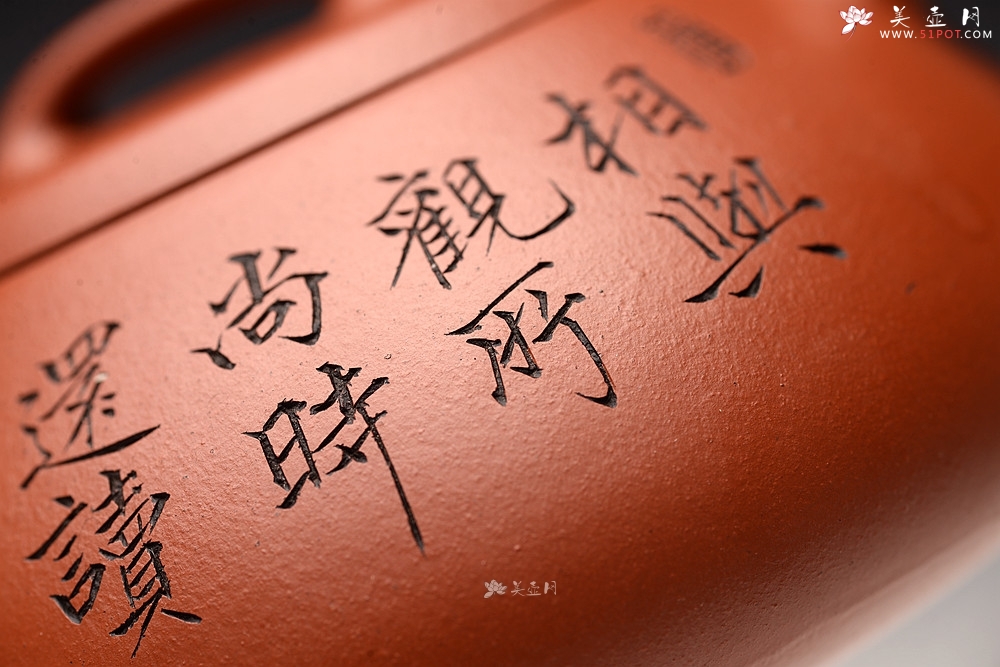 相與
觀所
尚時
還讀
美壶网
WWW.51POT.COM
美壶网